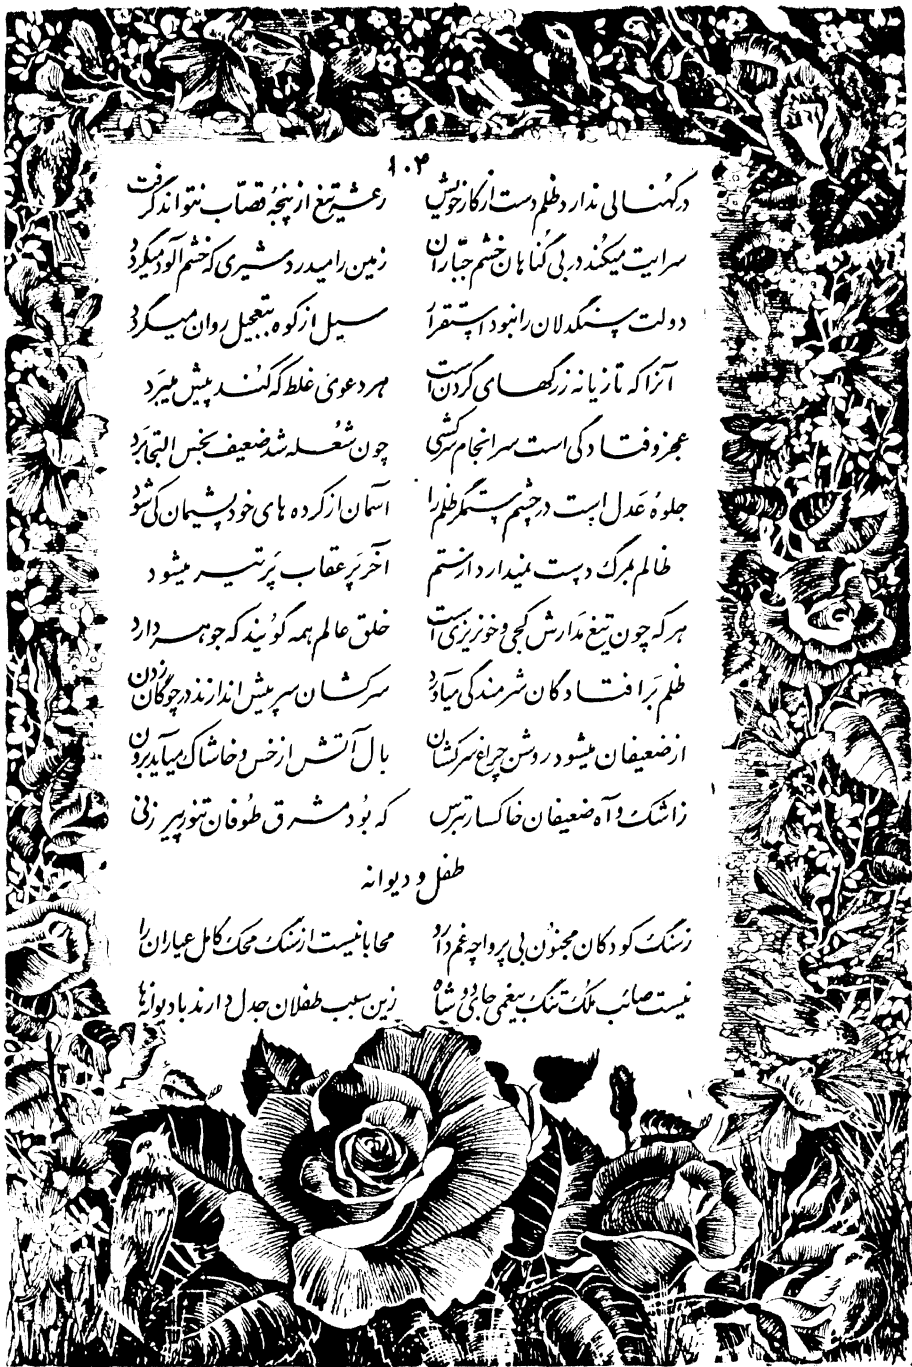 ۱۰۴
در کهنسالی ندارد ظلم دست از کار خویش    رعشه تیغ از پنجهٔ قصّاب نتواند گرفت
سرایت میکند در بی گناهان خشم جبّاران    زمین را میدرد شیری که خشم آلود میگردد
دولت سنگدلان را نبود استقرار    سیل از کوه بتعجیل روان میگردد
آنرا که تازیانه ز رگهای گردن است    هر دعوی غلط که کند پیش میبرد
عجز و فتادگی است سرانجام سرکشی    چون شعله شد ضعیف بخس التجا برد
جلوهٔ عدل است در چشم ستمگر ظلم را    آسمان از کرده های خود پشیمان کی شود
ظالم بمرگ دست نمیدارد از ستم    آخر پر عقاب پر تیر میشود
هر که چون تیغ مدارش کجی و خونریزی است    خلق عالم همه گویند که جوهر دارد
ظلم بر افتادگان شرمندگی میآورد    سرکشان سر پیش اندازند در چوگان زدن
از ضعیفان میشود روشن چراغ سرکشان    بال آتش از خس و خاشاک میآید برون
ز اشک و آه ضعیفان خاکسار بترس    که بود مشرق طوفان تنور پیر زنی
طفل و دیوانه
ز سنگ کودکان مجنون بی پروا چه غم دارد    محابا نیست از سنگ محک کامل عیاران را
نیست صائب ملک تنگ بیغمی جای دو شاه    زین سبب طفلان جدل دارند با دیوانه‌ها